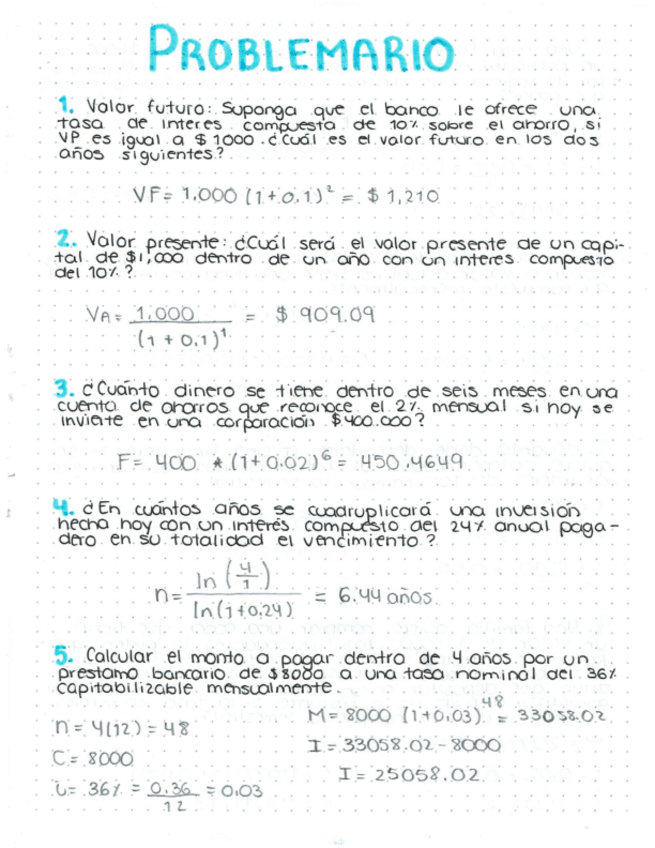 PROBLEMARIO
1. Valor futuro: Suponga que el banco le ofrece una
tasa de interes compuesta de 10% sobre el ahorro, si
VP es igual a $1000 ¿Cuál es el valor futuro en los dos
años siguientes?
VF = 1.000 (1+0.1)² = $ 1,210
2. Valor presente: ¿Cuál será el valor presente de un capi-
tal de $1,000 dentro de un año con un interes compuesto
del 10%?
VA = 1.000 / (1 + 0.1)¹ = $ 909.09
3. ¿Cuánto dinero se tiene dentro de seis meses en una
cuenta de ahorros que reconoce el 2% mensual si hoy se
invierte en una corporación $400.000?
F = 400 * (1+0.02)⁶ = 450.4649
4. ¿En cuántos años se cuadruplicará una inversión
hecha hoy con un interés compuesto del 24% anual paga-
dero en su totalidad el vencimiento?
n = ln (4/1) / ln(1+0.24) = 6.44 años
5. Calcular el monto a pagar dentro de 4 años por un
préstamo bancario de $8000 a una tasa nominal del 36%
capitabilizable mensualmente.
n = 4(12) = 48
C = 8000
i = 36% = 0.36 / 12 = 0.03
M = 8000 (1+0.03)⁴⁸ = 33058.02
I = 33058.02 - 8000
I = 25058.02